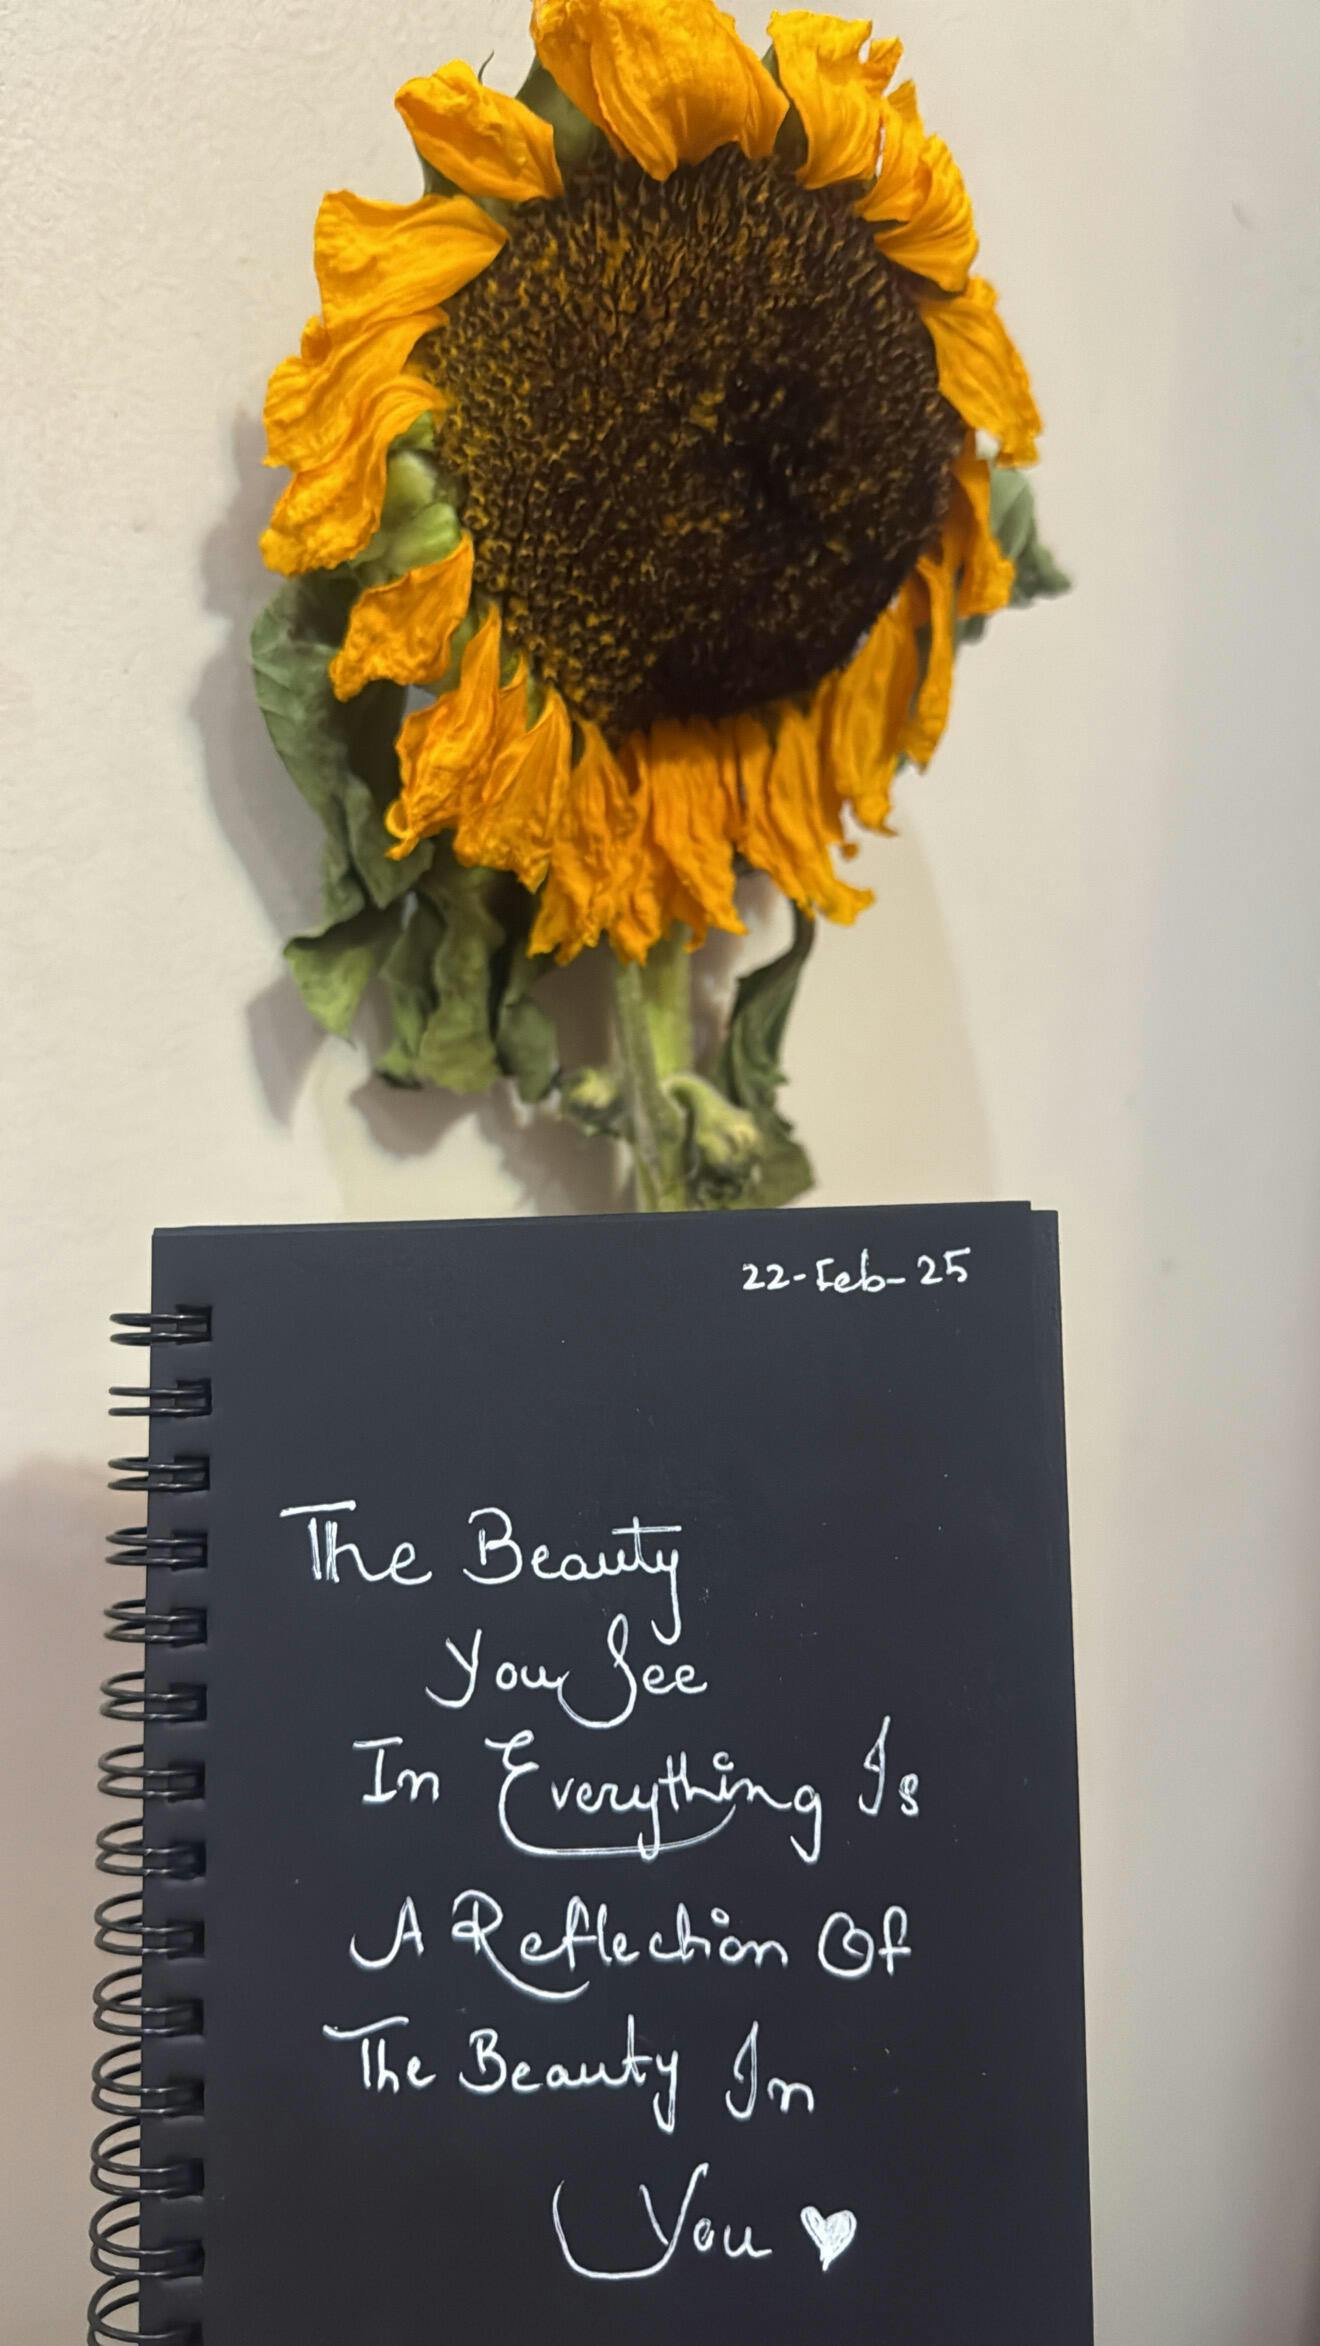 22-Feb-25
The Beauty
You See
In Everything Is
A Reflection Of
The Beauty In
You ♥